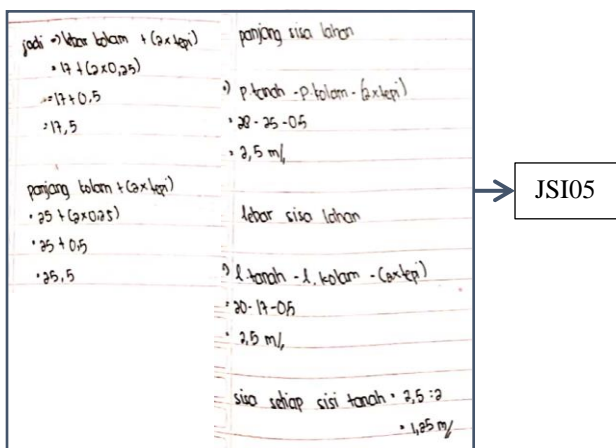 jadi => lebar kolam + (2x tepi)
= 17 + (2x0,25)
= 17 + 0,5
= 17,5
panjang kolam + (2x tepi)
= 25 + (2x0,25)
= 25 + 0,5
= 25,5
panjang sisa lahan
=) p.tanah - p.kolam - (2xtepi)
= 28 - 25 - 0,5
= 2,5 m//
lebar sisa lahan
=) l.tanah - l.kolam - (2xtepi)
= 20 - 17 - 0,5
= 2,5 m//
sisa setiap sisi tanah = 2,5 : 2
= 1,25 m//
JSI05